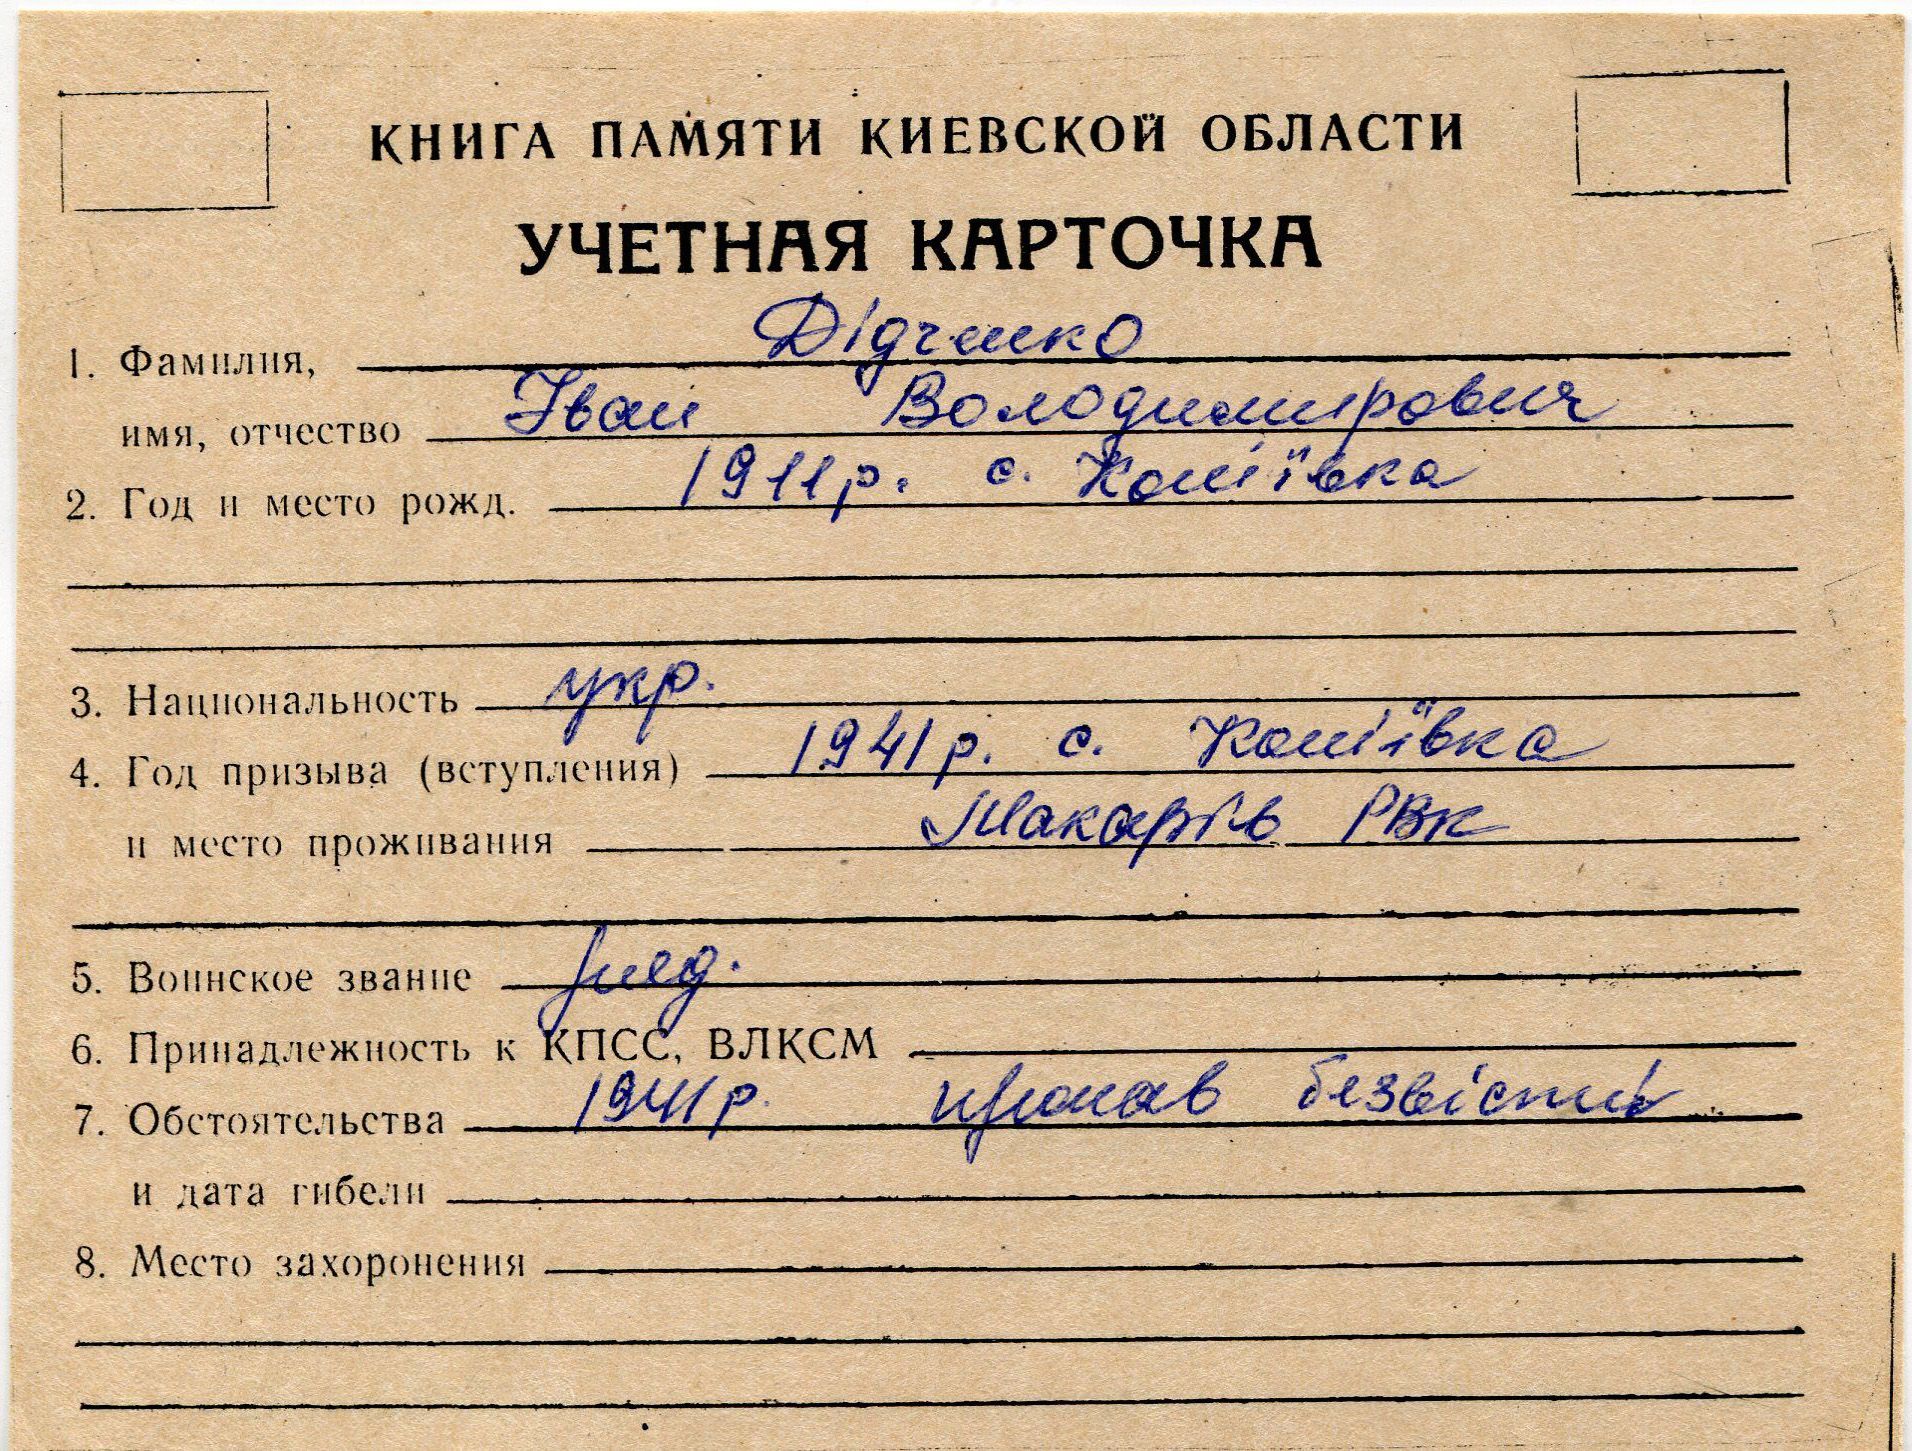 КНИГА ПАМЯТИ КИЕВСКОЙ ОБЛАСТИ
УЧЕТНАЯ КАРТОЧКА
1. Фамилия, Дідченко
имя, отчество Іван Володимирович
2. Год и место рожд. 1911р. с. Копіївка
3. Национальность укр.
4. Год призыва (вступления) 1941р. с. Копіївка
и место проживания Макарів РВК
5. Воинское звание ряд.
6. Принадлежность к КПСС, ВЛКСМ
7. Обстоятельства 1941р. пропав безвісти
и дата гибели
8. Место захоронения